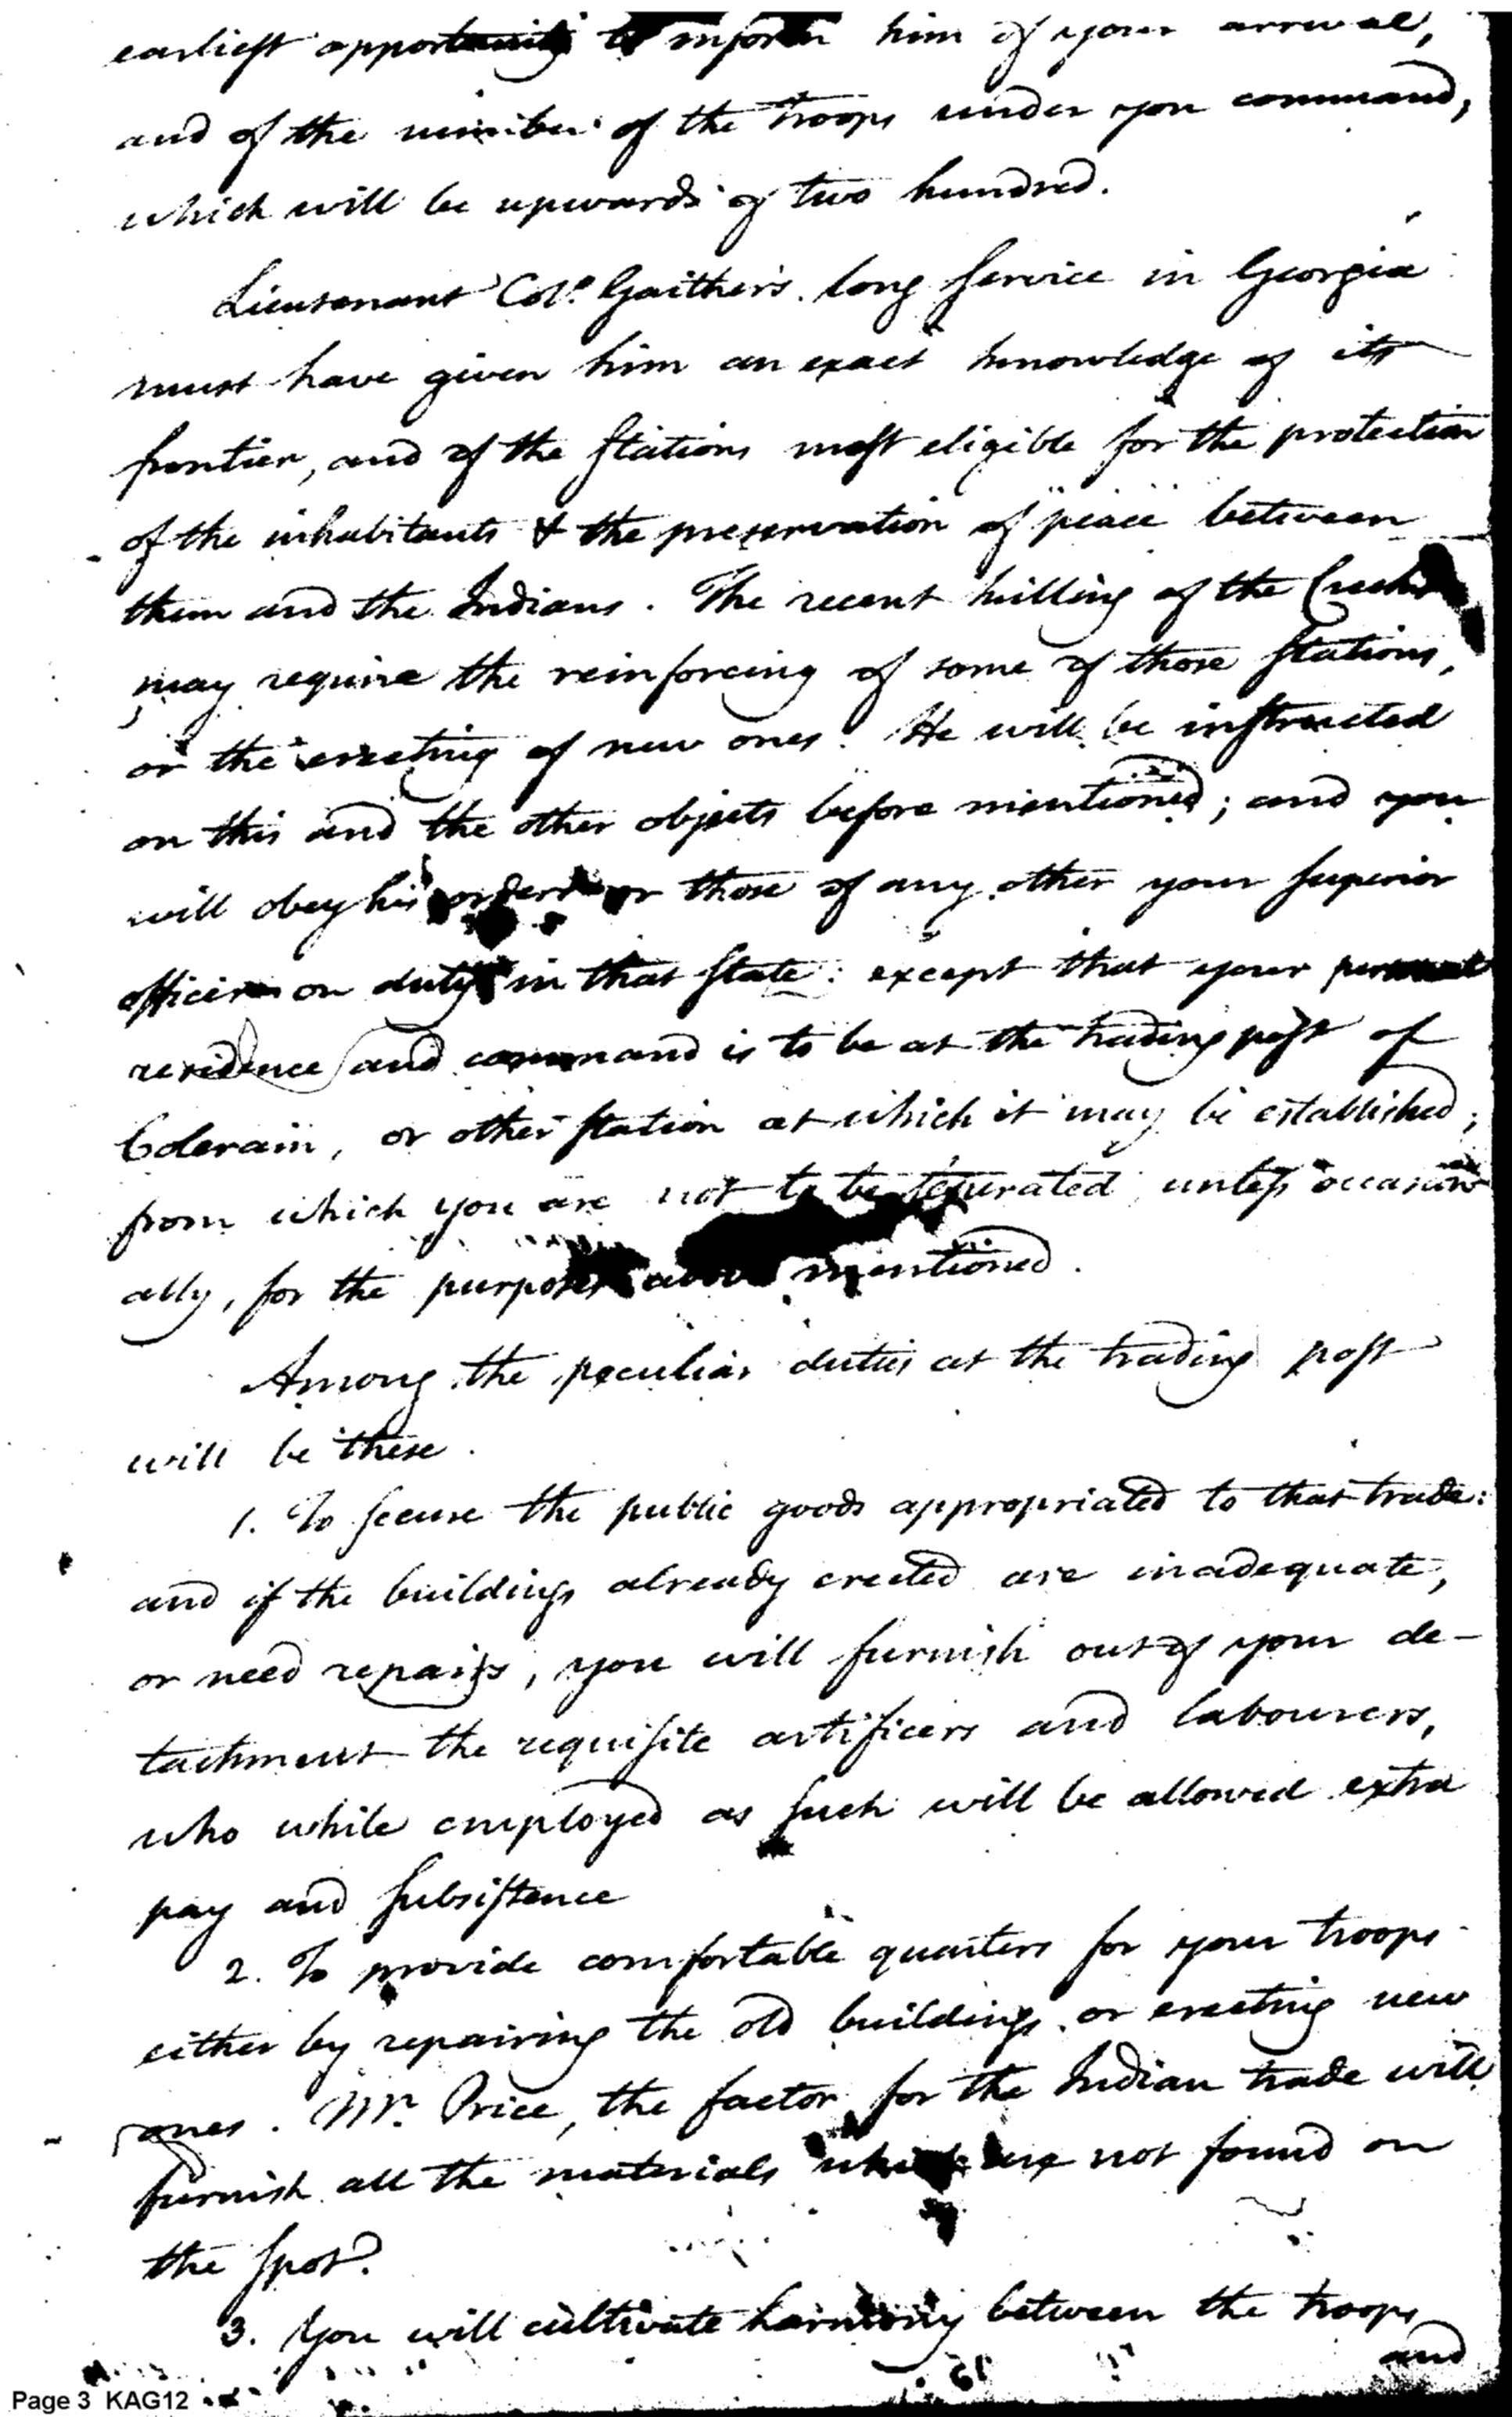 earliest opportunity to inform him of your arrival,
and of the number of the troops under you command,
which will be upwards of two hundred.
Lieutenant Colo. Gaither's long service in Georgia
must have given him an exact knowledge of its
frontier, and of the stations most eligible for the protection
of the inhabitants & the preservation of peace between
them and the Indians. The recent killing of the Creeks
may require the reinforcing of some of those stations,
or the erecting of new ones. He will be instructed
on this and the other objects before mentioned; and you
will obey his orders or those of any other your superior
officer on duty in that state: except that your
residence and command is to be at the trading post of
Colerain, or other station at which it may be established;
from which you are not to be separated unless occasion
ally, for the purposes above mentioned.
Among the peculiar duties at the trading post
will be these.
1. To secure the public goods appropriated to that trade:
and if the buildings already erected are inadequate,
or need repairs, you will furnish out of your de-
tachment the requisite artificers and labourers,
who while employed as such will be allowed extra
pay and subsistence
2. To provide comfortable quarters for your troops
either by repairing the old buildings or erecting new
ones. Mr. Price, the factor for the Indian trade will
furnish all the materials which are not found on
the spot.
3. You will cultivate harmony between the troops
and
Page 3 KAG12